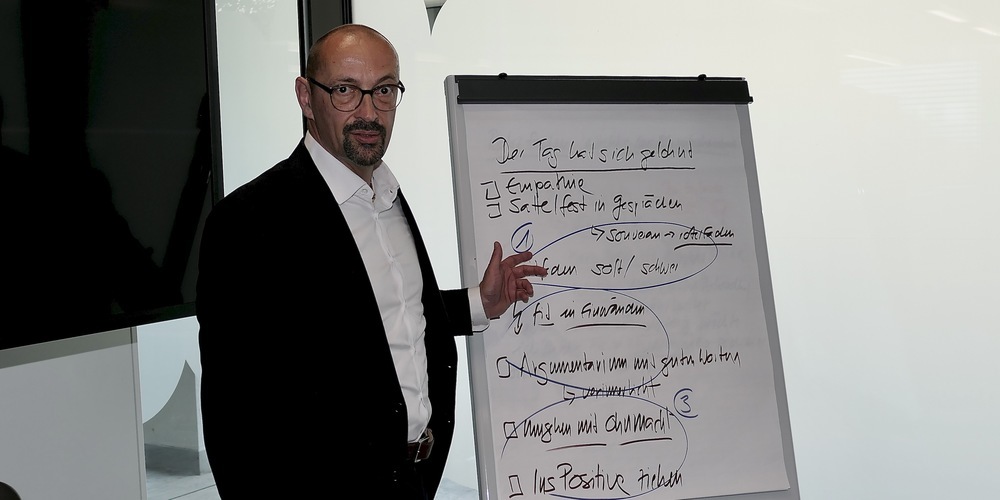 Der Tag hat sich gelohnt
Empathie
Sattelfest in Gesprächen
↳ Souverän → Leitfaden
1
soft / schwer
↳ fit in Einwänden
Argumentarium mit guten Worten
↳ 
3
Umgehen mit Ohnmacht
Ins Positive ziehen